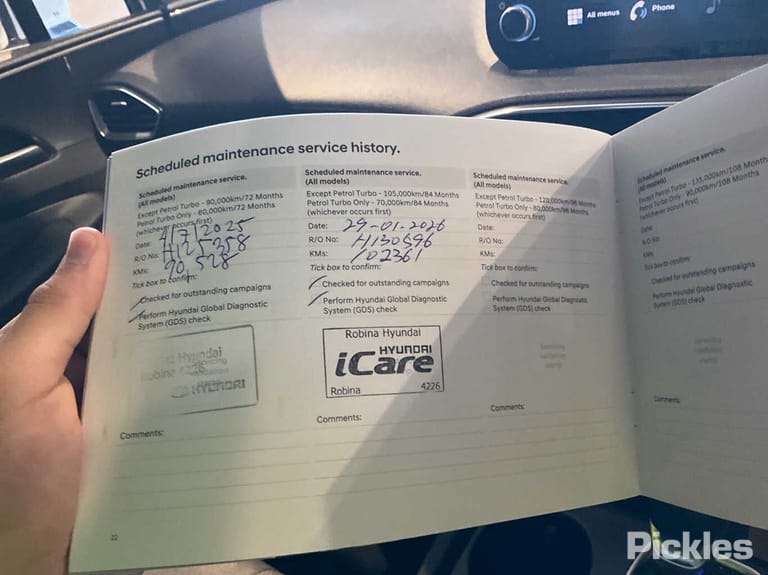 All menus
Phone
Scheduled maintenance service history.
Scheduled maintenance service.
(All models)
Except Petrol Turbo - 90,000km/72 Months
Petrol Turbo Only - 60,000km/72 Months
(whichever occurs first)
Date: 4/7/2025
R/O No: H125358
KMs: 90,528
Tick box to confirm:
Checked for outstanding campaigns
Perform Hyundai Global Diagnostic
System (GDS) check
Hyundai
Robina 4226
HYUNDAI
Comments:
Scheduled maintenance service.
(All models)
Except Petrol Turbo - 105,000km/84 Months
Petrol Turbo Only - 70,000km/84 Months
(whichever occurs first)
Date: 29-01-2026
R/O No: H130596
KMs: 102361
Tick box to confirm:
Checked for outstanding campaigns
Perform Hyundai Global Diagnostic
System (GDS) check
Robina Hyundai
HYUNDAI
iCare
Robina 4226
Comments:
Scheduled maintenance service.
(All models)
Except Petrol Turbo - 120,000km/96 Months
Petrol Turbo Only - 80,000km/96 Months
(whichever occurs first)
Date:
R/O No:
KMs:
Tick box to confirm:
Checked for outstanding campaigns
Perform Hyundai Global Diagnostic
System (GDS) check
Servicing
validation
stamp
Comments:
Scheduled maintenance service.
(All models)
Except Petrol Turbo - 135,000km/108 Months
Petrol Turbo Only - 90,000km/108 Months
(whichever occurs first)
Date:
R/O No:
KMs:
Tick box to confirm:
Checked for outstanding campaigns
Perform Hyundai Global Diagnostic
System (GDS) check
Servicing
validation
stamp
Comments:
22
Pickles